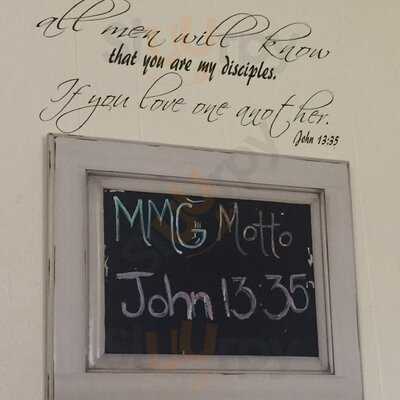 all men will know
that you are my disciples.
If you love one another.
John 13:35
MMG Motto
John 13:35